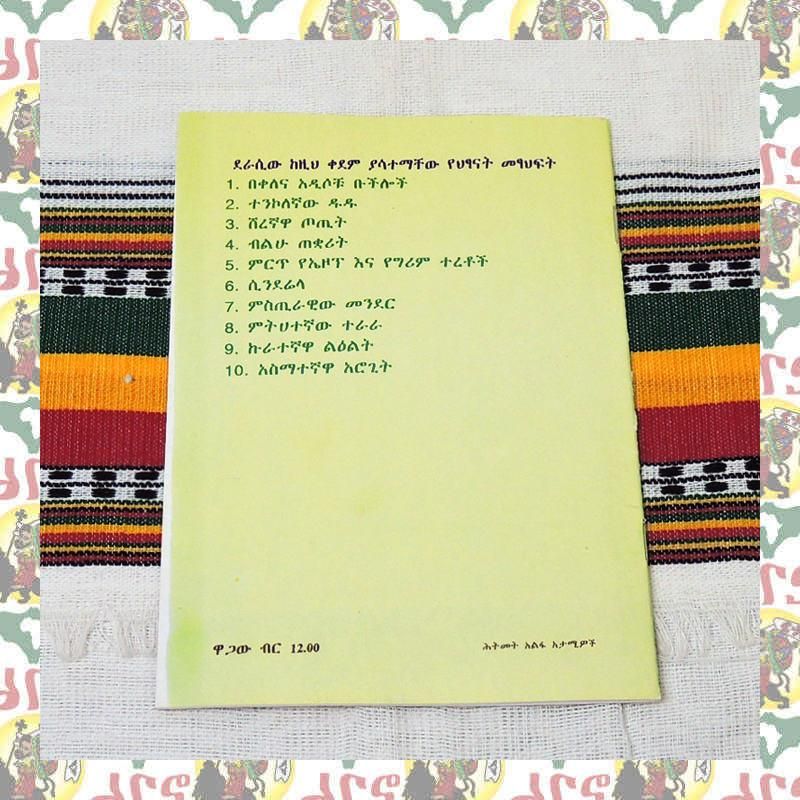 ደራሲው ከዚህ ቀደም ያሳተማቸው የህፃናት መፃህፍት
1. በቀለና አዲሶቹ ቡችሎች
2. ተንኮለኛው ዱዱ
3. ሸረኛዋ ጦጢት
4. ብልሁ ጠቋሪት
5. ምርጥ የኤዞፕ እና የግሪም ተረቶች
6. ሲንደሬላ
7. ምስጢራዊው መንደር
8. ምትሀተኛው ተራራ
9. ኩራተኛዋ ልዕልት
10. አስማተኛዋ አሮጊት
ዋጋው ብር 12.00
ሕትመት አልፋ አታሚዎች